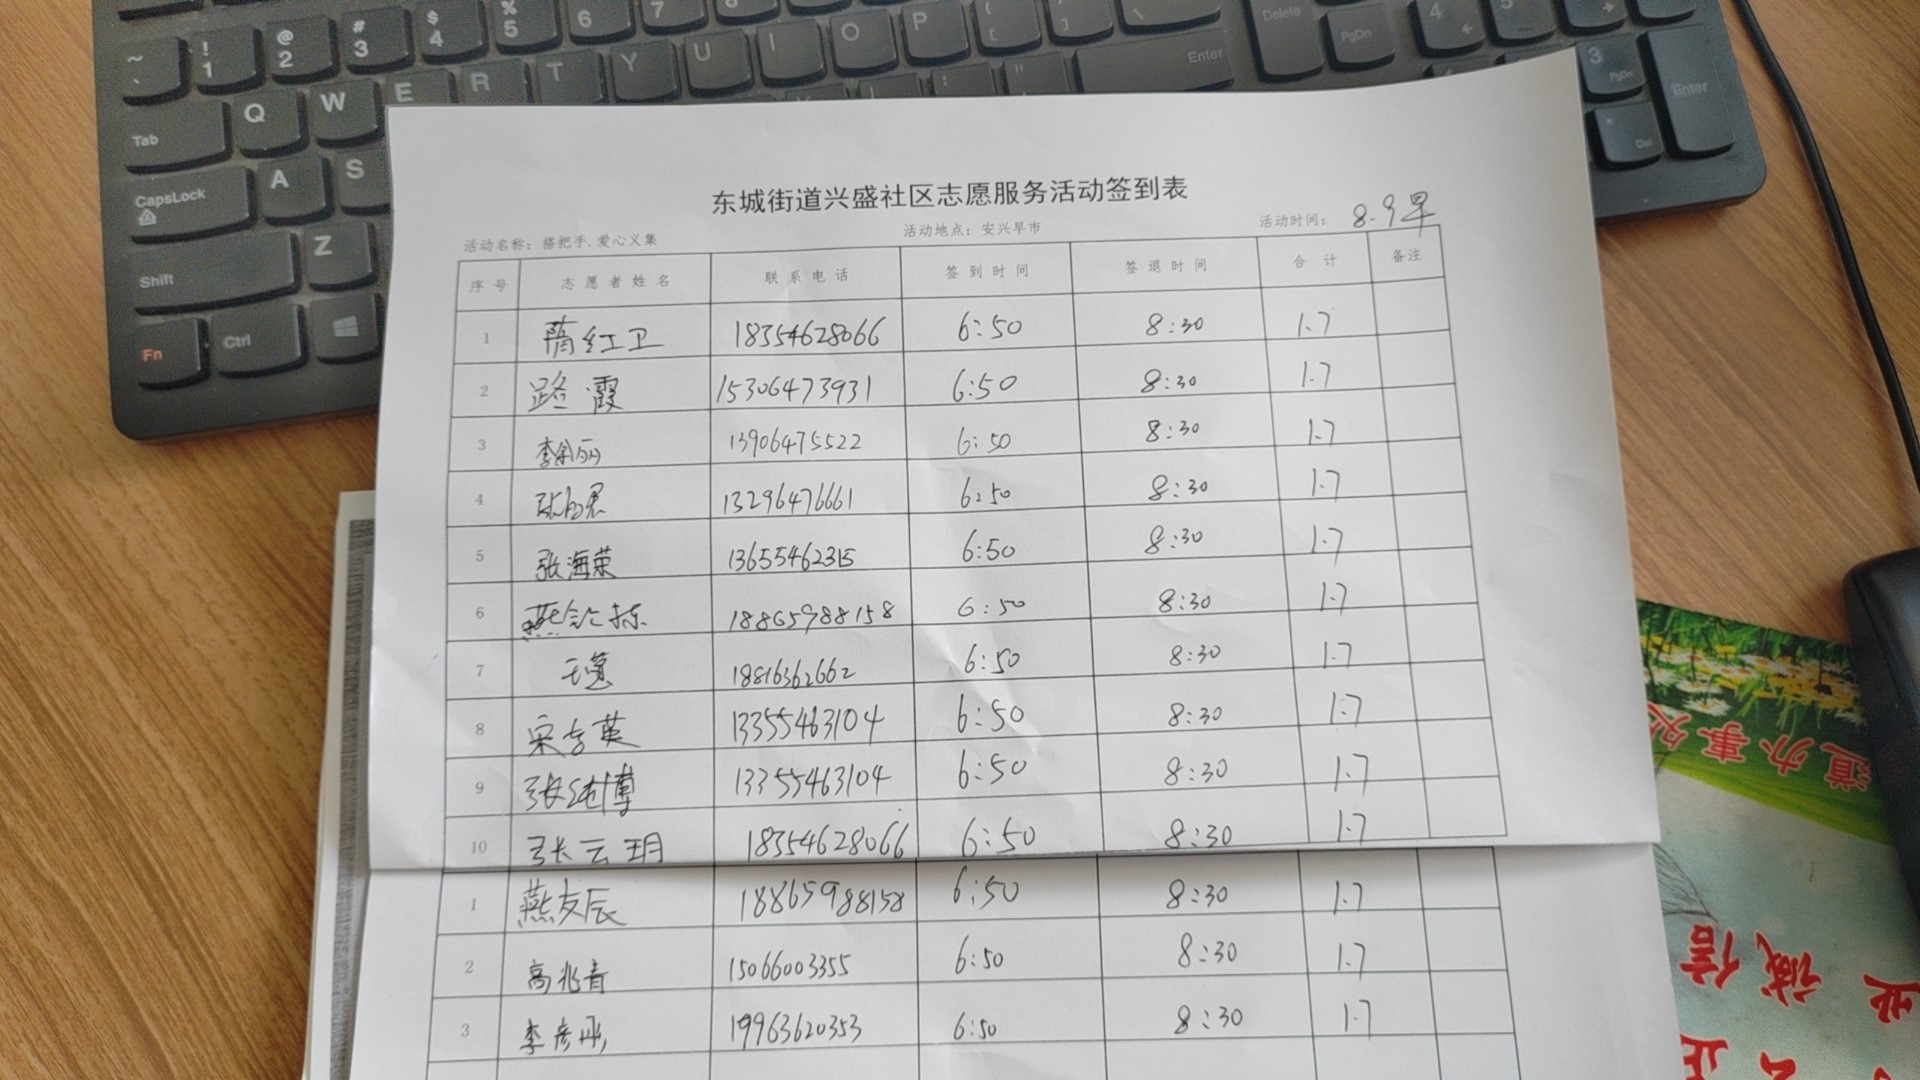 ~ ` ! 1 @ 2 # 3 $ 4 % 5 6 7 8
Tab Q W E R T Y U I O P Enter Delete PgDn 4 5
CapsLock A S 3 PgDn Enter
Shift Z Del
Fn Ctrl
东城街道兴盛社区志愿服务活动签到表
活动名称：搭把手、爱心义集 活动地点：安兴早市 活动时间：8.9早
序号 志愿者姓名 联系电话 签到时间 签退时间 合计 备注
1 隋红卫 18354628066 6:50 8:30 1.7
2 路霞 15306473931 6:50 8:30 1.7
3 13906475522 6:50 8:30 1.7
4 13296476661 6:50 8:30 1.7
5 张海荣 13655462315 6:50 8:30 1.7
6 18865988158 6:50 8:30 1.7
7 18816362662 6:50 8:30 1.7
8 13355463104 6:50 8:30 1.7
9 张纯博 13355463104 6:50 8:30 1.7
10 张云玥 18354628066 6:50 8:30 1.7
1 燕友辰 18865988158 6:50 8:30 1.7
2 高兆青 15066003355 6:50 8:30 1.7
3 19963620353 6:50 8:30 1.7
道办事处
诚信
正
业